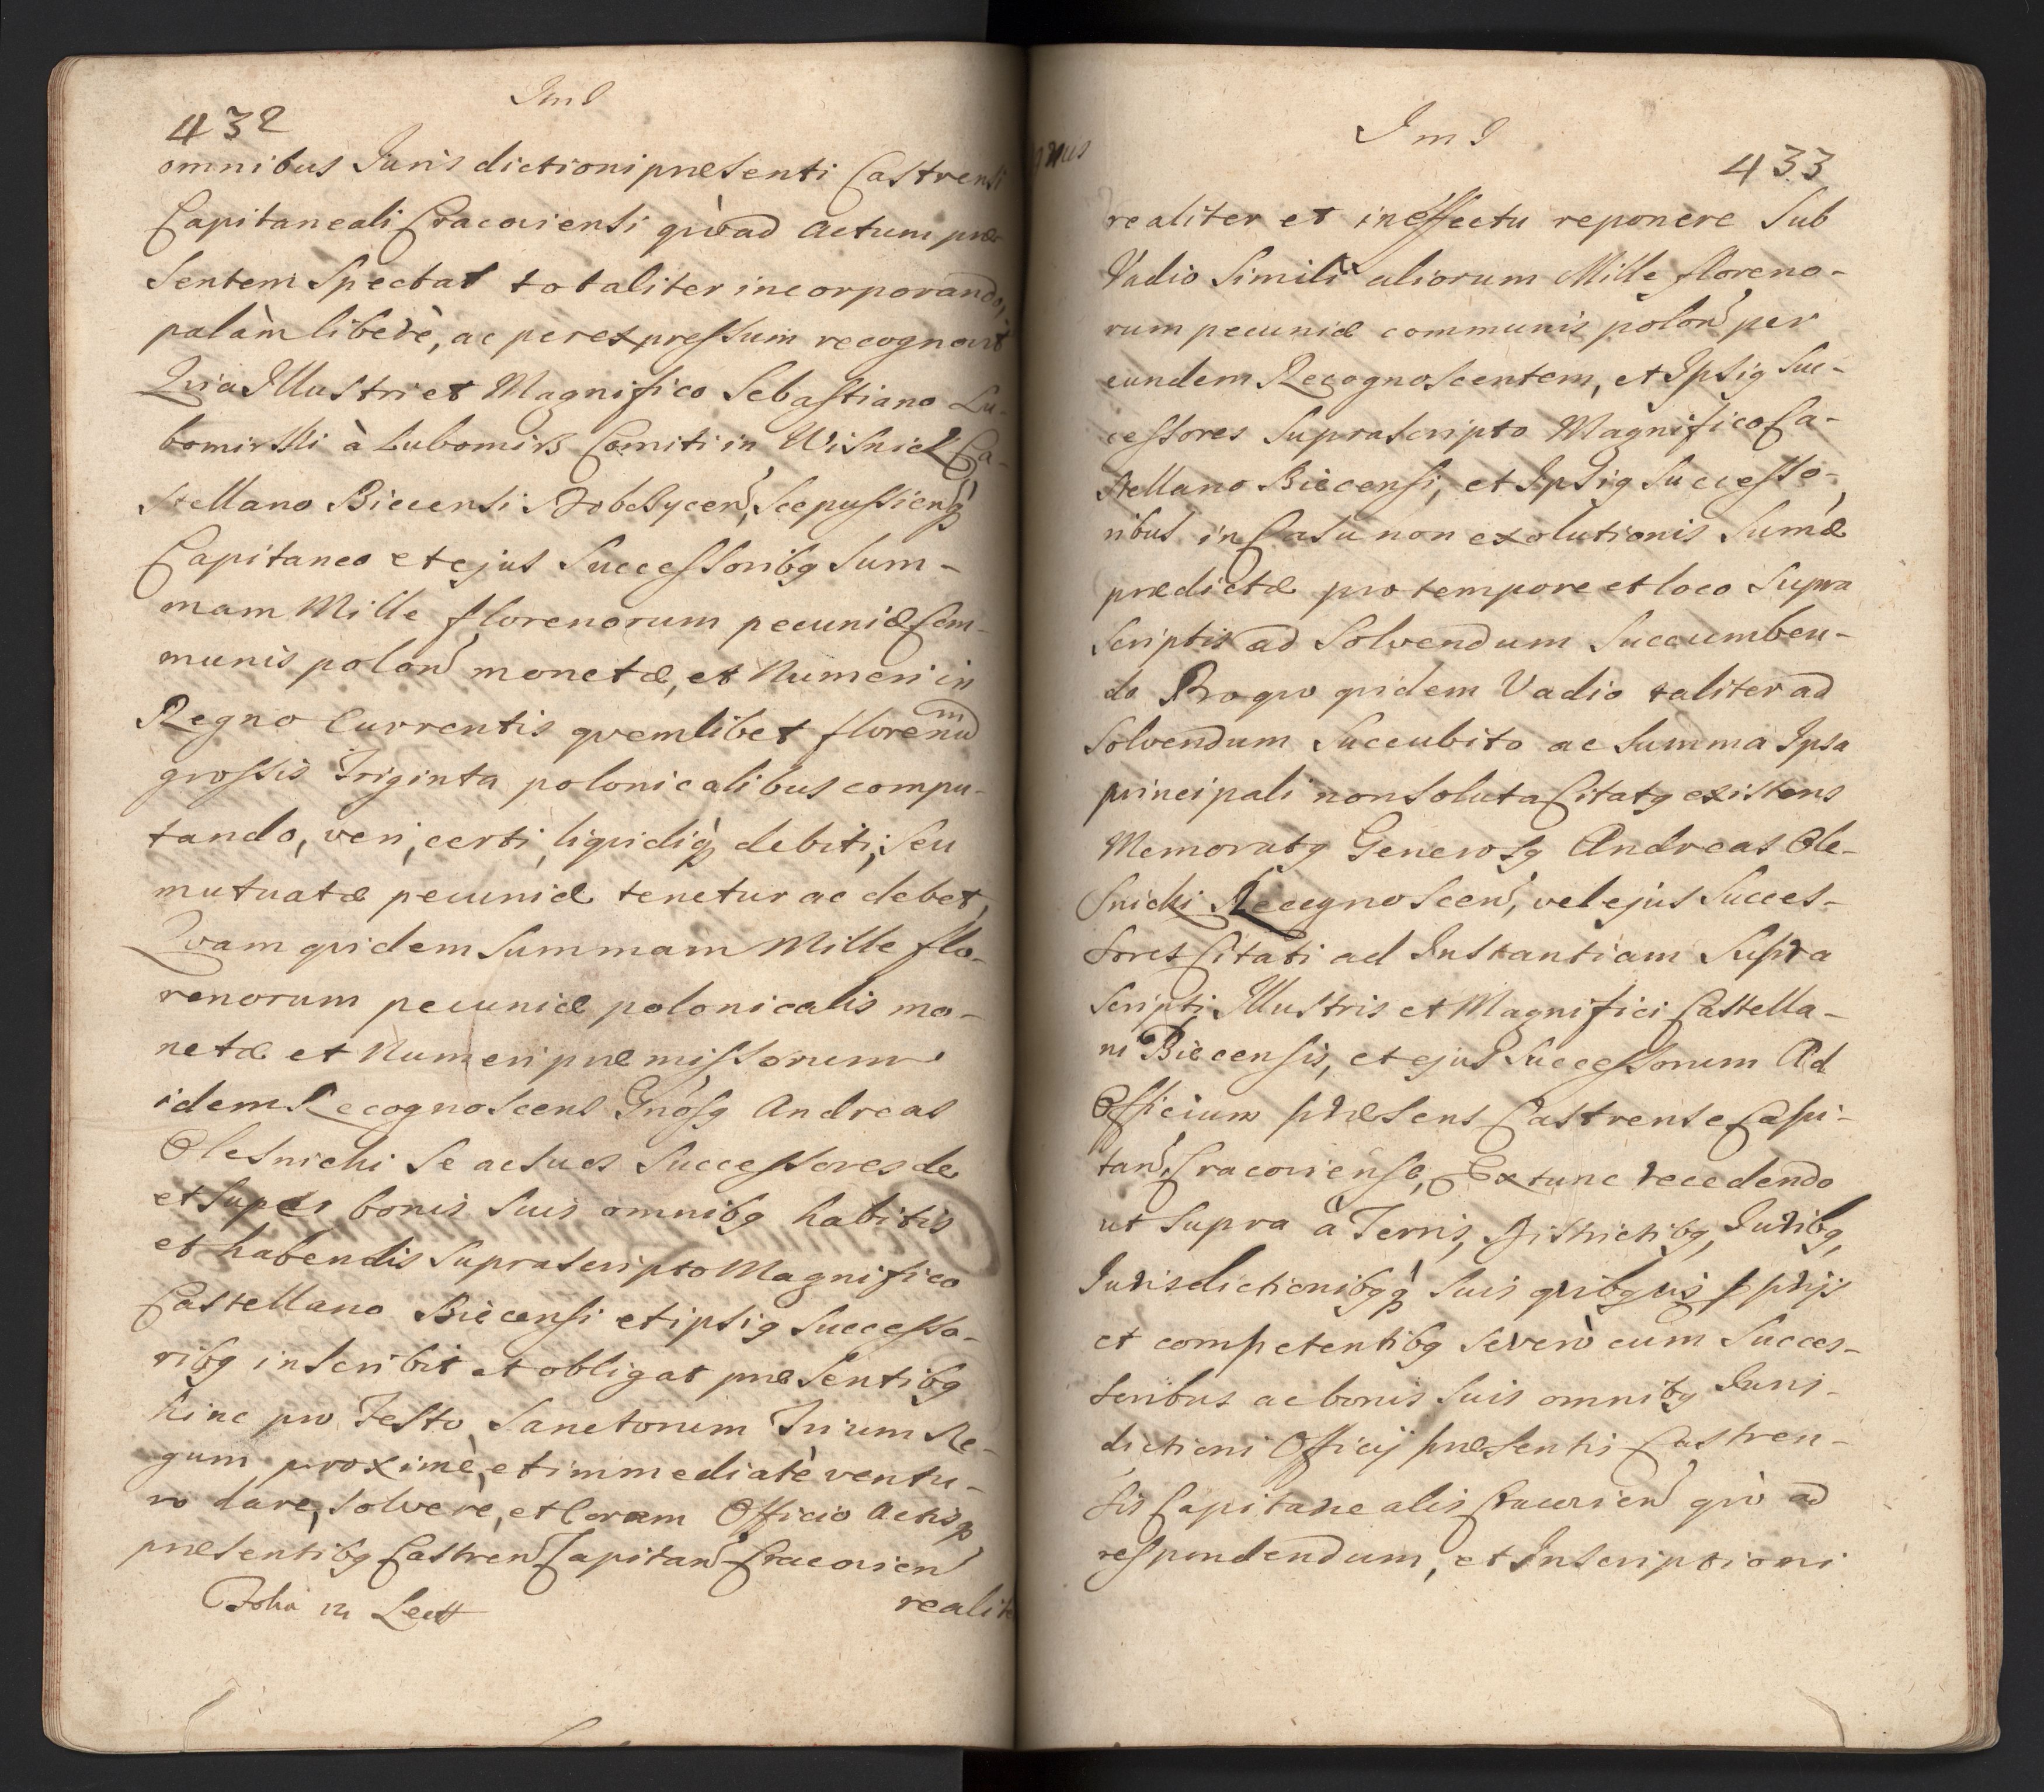 Im I
432
omnibus Juris dictioni præsenti Castrensi
Capitaneali Cracoviensi qvòad Actum præ-
sentem Spectat totaliter incorporando,
palàm liberè, ac per expressum recognovit
Qvia Illustri et Magnifico Sebastiano Lu-
bomirski à Lubomirz Comiti in Wisnicz Ca-
stellano Biecensi Dobczycen, Scepussienq
Capitaneo et ejus Successoribq Sum-
mam Mille florenorum pecuniæ Com-
munis polon monetæ, et Numeri in
Regno Currentis qvemlibet florenum
grossis Triginta polonicalibus compu-
tando, veri, certi, liqvidiq debiti, seu
mutuatæ pecuniæ tenetur ac debet,
Qvam qvidem Summam Mille flo-
renorum pecuniæ polonicalis mo-
netæ et Numeri præmissorum
idem Recognoscens Gnosq Andreas
Olesnicki Se ac Suos Successores de
et super bonis Suis omnibq habitis
et habendis Suprascripto Magnifico
Castellano Biecensi et ipsiq Successo-
ribq inscribit et obligat præsentibq
hinc pro Festo Sanctorum Trium Re-
gum proximè, et immediatè ventu-
ro dare, Solvere, et Coram Officio Actisq
præsentibq Castren Capitan Cracovien
realite
Im I
433
realiter et in effectu reponere Sub
Vadio Simili aliorum Mille floreno-
rum pecuniæ communis polon per
eundem Recognoscentem, et Ipsiq Suc-
cessores Suprascripto Magnifico Ca-
stellano Biecensi, et Ipsiq Successo-
ribus in Casu non exolutionis Sumæ
prædictæ pro tempore et loco Supra
Scriptis ad Solvendum Succumben-
do Pro qvo qvidem Vadio taliter ad
Solvendum Succubito ac Summa Ipsa
principali non Soluta Citatq existens
Memoratq Generosq Andreas Ole-
snicki Recognoscen, vel ejus Succes-
sores Citati ad Instantiam Supra
Scripti Illustris et Magnifici Castella-
ni Biecensis, et ejus Successorum Ad
Officium præsens Castrense Capi-
tan Cracoviense, Ex tunc recedendo
ut Supra à Terris, Districtibq, Juribq,
Jurisdictionibqq Suis qvibqvis pprijs
et competentibq Severò cum Succes-
soribus ac bonis Suis omnibq Juris-
dictioni Officij præsentis Castren-
sis Capitanealis Cracovien qvò ad
respondendum, et Inscriptioni